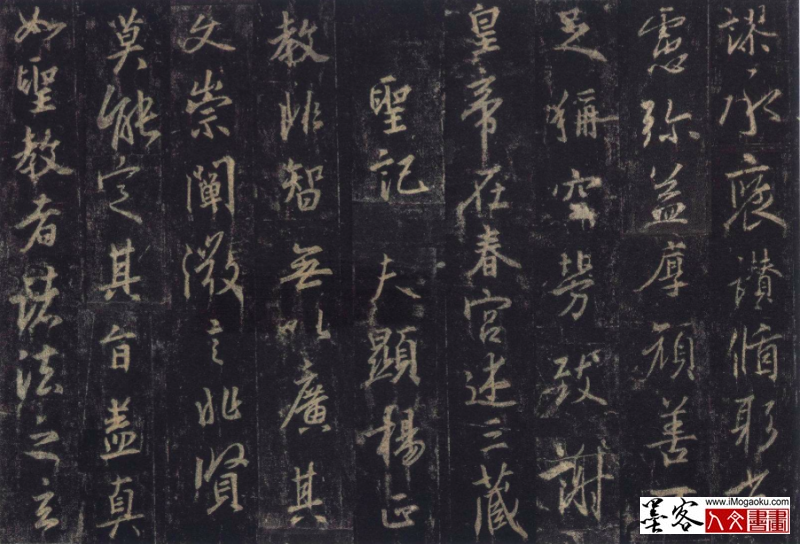 謬承褒讚循躬
慮弥益厚顏善
足稱空勞致謝
皇帝在春宮述三藏
聖記 夫顯揚正
教非智無以廣其
文崇闡微言非賢
莫能定其旨蓋真
如聖教者諸法之玄
www.iMogaoku.com
墨客人文書畫